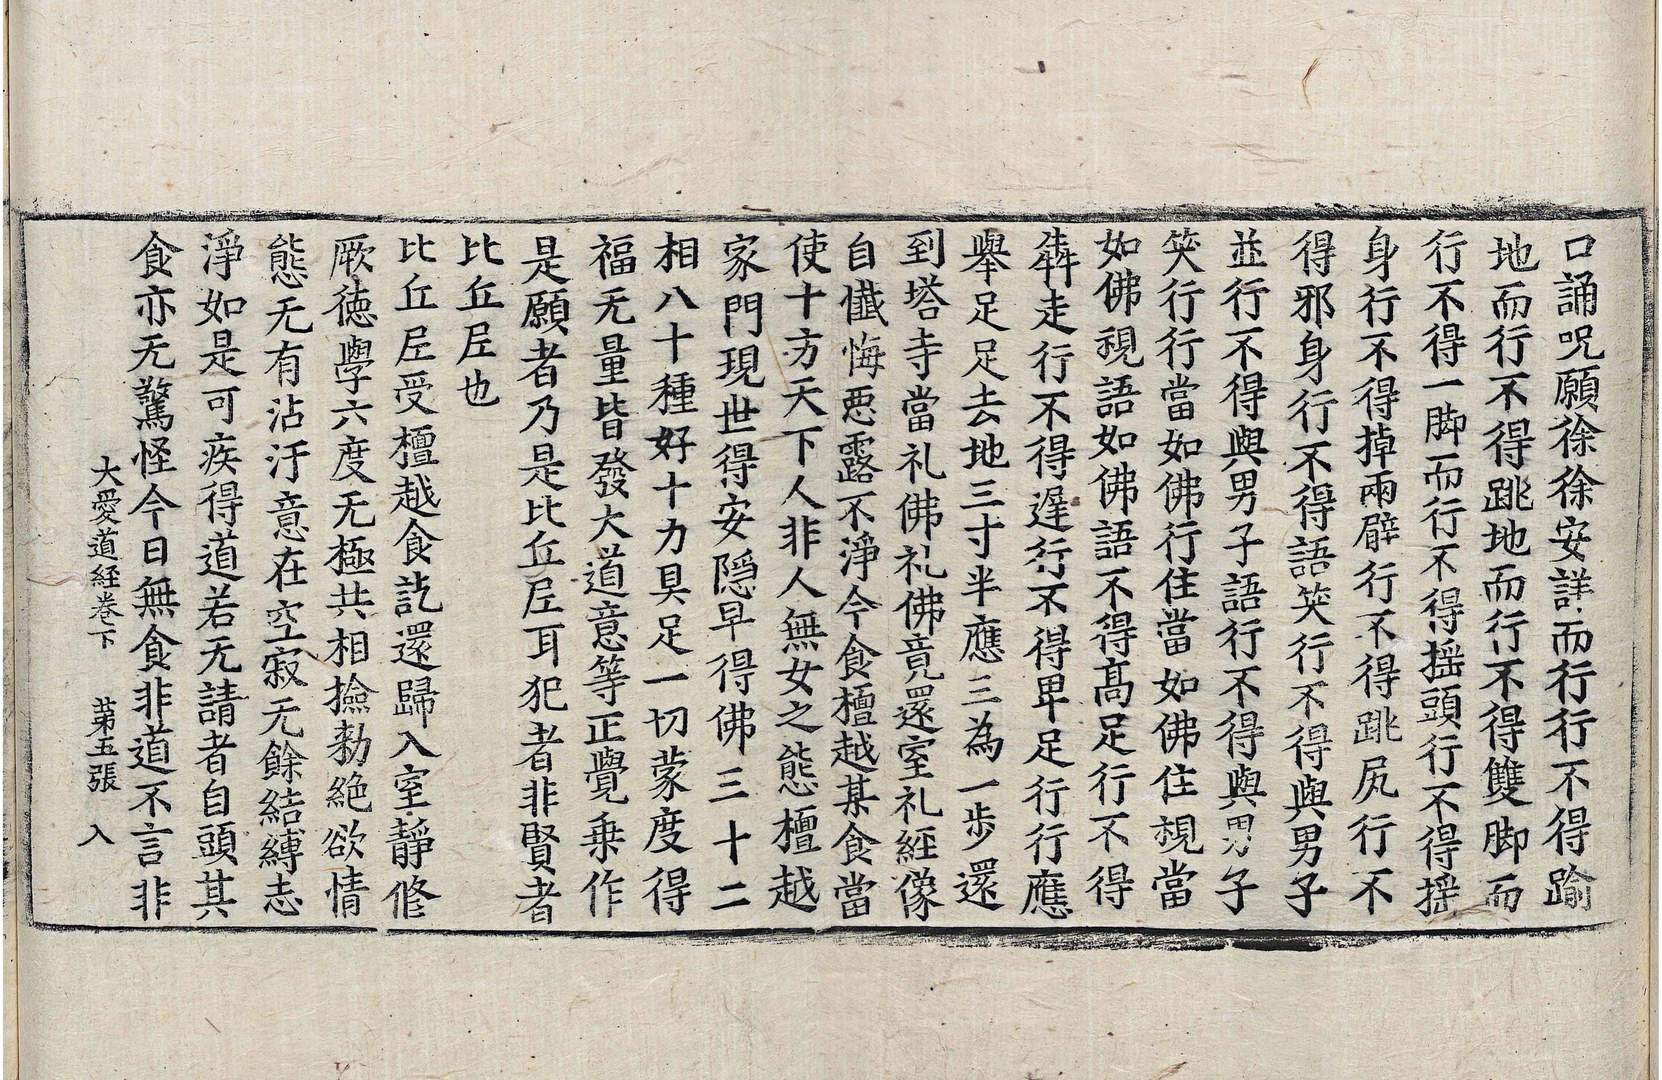 口誦呪願徐徐安詳而行行不得踰
地而行不得跳地而行不得雙脚而
行不得一脚而行不得揺頭行不得揺
身行不得掉兩臂行不得跳尻行不
得邪身行不得語笑行不得與男子
並行不得與男子語行不得與男子
笑行行當如佛行住當如佛住視當
如佛視語如佛語不得髙足行不得
犇走行不得遟行不得卑足行行應
舉足足去地三寸半應三為一步還
到塔寺當礼佛礼佛竟還室礼經像
自懺悔惡露不淨今食檀越某食當
使十方天下人非人無女之態檀越
家門現世得安隠早得佛三十二
相八十種好十力具足一切蒙度得
福无量皆發大道意等正覺乗作
是願者乃是比丘𡰱耳犯者非賢者
比丘𡰱也
比丘𡰱受檀越食訖還歸入室静修
厥徳學六度无極共相撿勑絶欲情
態无有沾汙意在空寂无餘結縛志
淨如是可疾得道若无請者自頭其
食亦无驚怪今日無食非道不言非
大愛道經卷下 苐五張 入